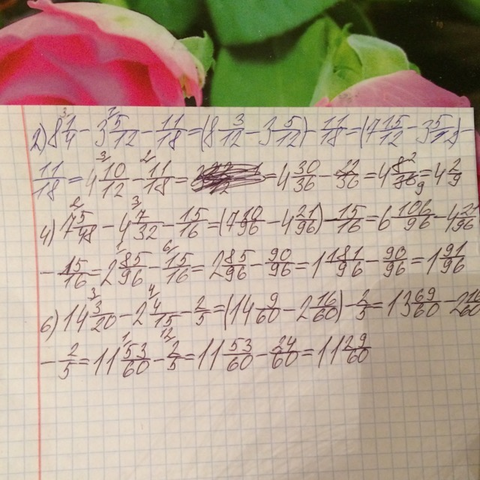 2) 8 1/4 - 3 5/12 - 11/18 = (8 3/12 - 3 5/12) - 11/18 = (7 15/12 - 3 5/12) -
11/18 = 4 10/12 - 11/18 = 4 30/36 - 22/36 = 4 8/36 = 4 2/9
4) 7 5/48 - 4 7/32 - 15/16 = (7 10/96 - 4 21/96) - 15/16 = 6 106/96 - 4 21/96
- 15/16 = 2 85/96 - 15/16 = 2 85/96 - 90/96 = 1 181/96 - 90/96 = 1 91/96
6) 14 3/20 - 2 4/15 - 2/5 = (14 9/60 - 2 16/60) - 2/5 = 13 69/60 - 2 16/60
- 2/5 = 11 53/60 - 2/5 = 11 53/60 - 24/60 = 11 29/60